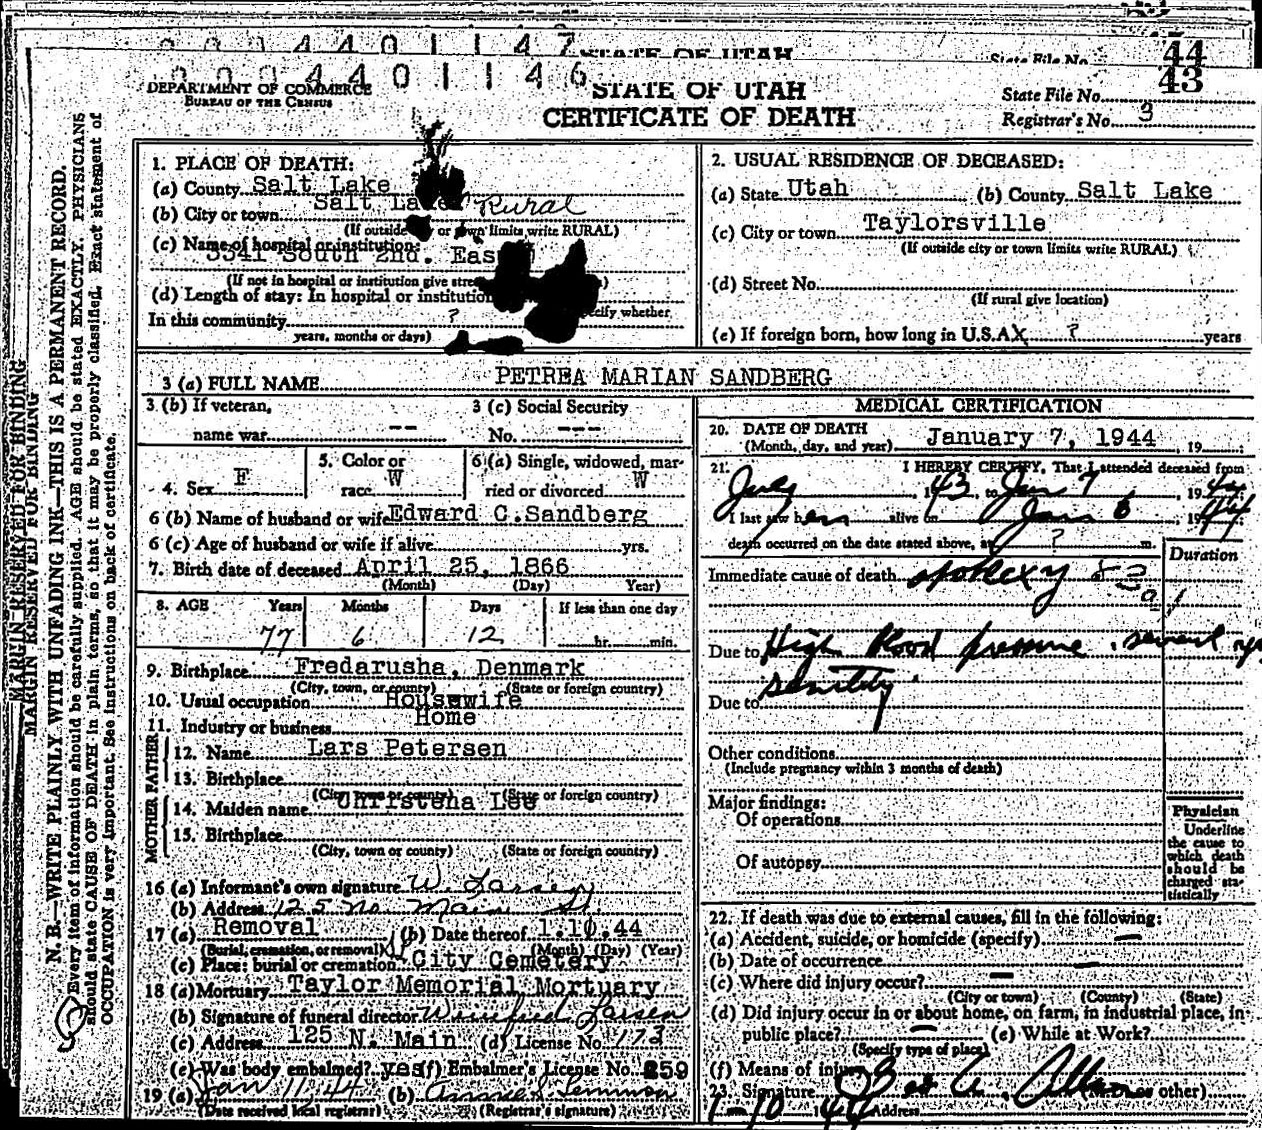 0 0 0 4 4 0 1 1 4 7
STATE OF UTAH
State File No. 44
0 0 0 4 4 0 1 1 4 6
DEPARTMENT OF COMMERCE
BUREAU OF THE CENSUS
STATE OF UTAH
CERTIFICATE OF DEATH
State File No. 43
Registrar's No. 3
MARGIN RESERVED FOR BINDING
MARGIN RESERVED FOR BINDING
N. B.—WRITE PLAINLY WITH UNFADING INK—THIS IS A PERMANENT RECORD.
Every item of information should be carefully supplied. AGE should be stated EXACTLY. PHYSICIANS
should state CAUSE OF DEATH in plain terms, so that it may be properly classified. Exact statement of
OCCUPATION is very important. See instructions on back of certificate.
1. PLACE OF DEATH:
(a) County Salt Lake
(b) City or town Salt Lake Rural
(If outside city or town limits write RURAL)
(c) Name of hospital or institution:
3341 South 2nd. East
(If not in hospital or institution give
(d) Length of stay: In hospital or institution
specify whether
In this community ?
years, months or days)
2. USUAL RESIDENCE OF DECEASED:
(a) State Utah (b) County Salt Lake
(c) City or town Taylorsville
(If outside city or town limits write RURAL)
(d) Street No.
(If rural give location)
(e) If foreign born, how long in U.S.A. X ? years
3 (a) FULL NAME PETREA MARIAN SANDBERG
3 (b) If veteran, name war -- 3 (c) Social Security No. ---
4. Sex F 5. Color or race W 6 (a) Single, widowed, married or divorced W
6 (b) Name of husband or wife Edward C. Sandberg
6 (c) Age of husband or wife if alive yrs.
7. Birth date of deceased April 25, 1866
(Month) (Day) Year)
8. AGE Years Months Days If less than one day
77 6 12 hr. min.
9. Birthplace Fredarusha, Denmark
(City, town, or county) (State or foreign country)
10. Usual occupation Housewife
11. Industry or business Home
FATHER
12. Name Lars Petersen
13. Birthplace
(City, town or county) (State or foreign country)
MOTHER
14. Maiden name Christena Lee
15. Birthplace
(City, town or county) (State or foreign country)
16 (a) Informant's own signature W. Larsen
(b) Address 125 No. Main St
17 (a) Removal (b) Date thereof 1.10.44
(Burial, cremation, or removal) (Month) (Day) (Year)
(c) Place: burial or cremation SL City Cemetery
18 (a) Mortuary Taylor Memorial Mortuary
(b) Signature of funeral director Winefred Larsen
(c) Address 125 N. Main (d) License No. 173
(e) Was body embalmed? yes (f) Embalmer's License No. 259
19 (a) Jan 11, 44 (b) Annie S. Lemmon
(Date received local registrar) (Registrar's signature)
MEDICAL CERTIFICATION
20. DATE OF DEATH
(Month, day, and year) January 7, 1944 , 19 ;
21. I HEREBY CERTIFY, That I attended deceased from
July , 1943, to Jan 7 , 1944;
I last saw her alive on Jan 6 , 1944
death occurred on the date stated above, at ? m.
Duration
Immediate cause of death apoplexy
Due to High Blood pressure. several yrs
Due to senility.
Other conditions
(Include pregnancy within 3 months of death)
Major findings:
Of operations
Of autopsy
Physician
Underline
the cause to
which death
should be
charged sta-
tistically
22. If death was due to external causes, fill in the following:
(a) Accident, suicide, or homicide (specify) —
(b) Date of occurrence —
(c) Where did injury occur? —
(City or town) (County) (State)
(d) Did injury occur in or about home, on farm, in industrial place, in
public place? — (e) While at Work?
(Specify type of place)
(f) Means of injury
23. Signature Geo A. Allen (M.D. or other)
1-10 1944 Address